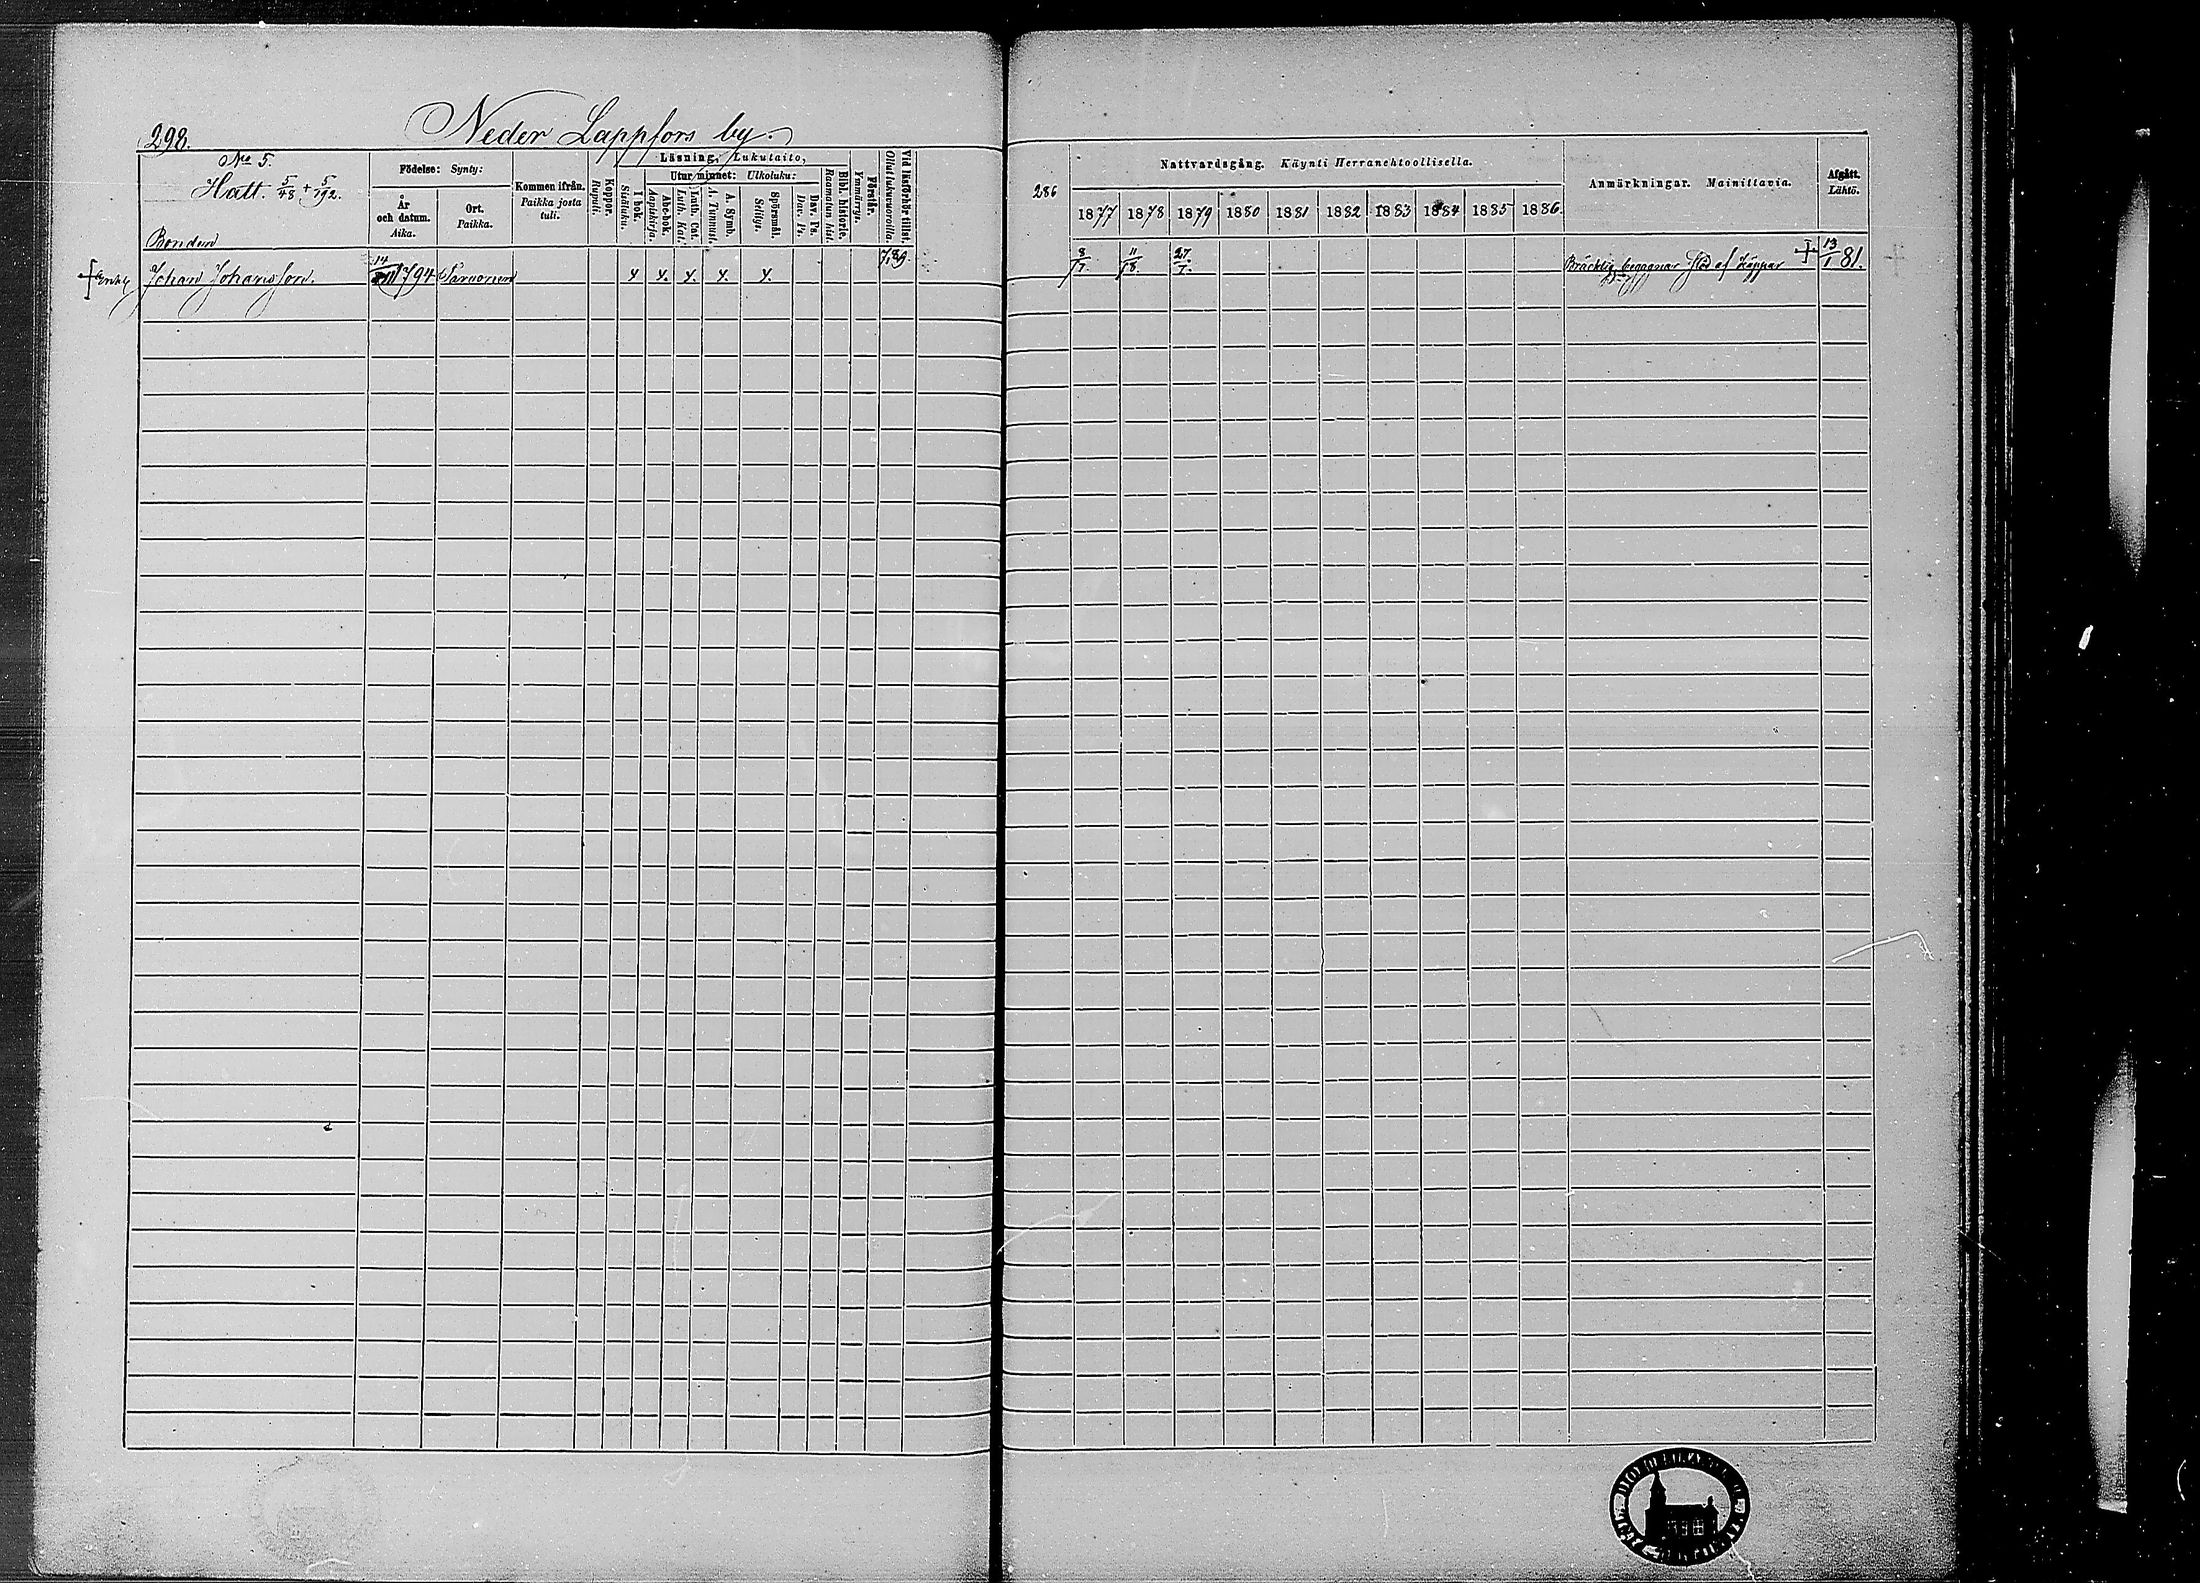 298.
Neder Lappfors by.
No 5.
Hatt. 5/48 + 5/192.
Födelse: Synty:
År och datum. Aika.
Ort. Paikka.
Kommen ifrån. Paikka josta tuli.
Koppor. Rupuli.
Läsning, Lukutaito,
I bok. Sisäluku.
Utur minnet: Ulkoluku:
Abc-bok. Aapiskirja.
Luth. Cat. Luth. Kat.
A. Symb. A. Tunnust.
Spörsmål. Selitys.
Dav. Ps. Dav. Ps.
Bibl. historie. Raamatun hist.
Förstår. Ymmärrys.
Vid läsförhör tillst. Ollut lukuvuoroilla.
Bonden
† Enkl. Johan Johansson. 14/11 1794 x. x. x. x. x. 7,8,9.
286
Nattvardsgång. Käynti Herranehtoollisella.
1877 1878 1879 1880 1881 1882 1883 1884 1885 1886
Anmärkningar. Mainittavia.
Afgått. Lähtö.
8/7 11/8 27/7.
Bräcklig begagnar stöd af käppar † 13/1 81.